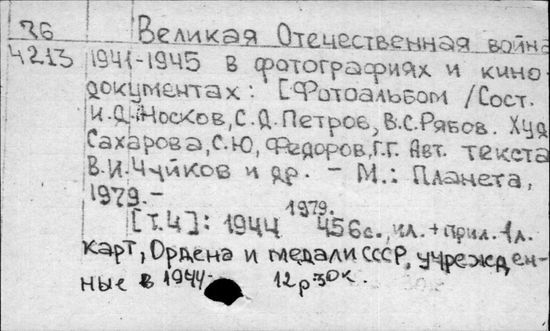 36 Великая Отечественная война
4213 1941-1945 в фотографиях и кино
документах: [Фотоальбом / Сост.
И.Д. Носков, С.Д. Петров, В.С. Рябов. Худ
Сахарова, С.Ю, Федоров, Г.Г. Авт. текста
В.И. Чуйков и др. – М.: Планета,
1979.-
[т.4]: 1944 1979. 456 с., ил. + прил. 1 л.
карт, Ордена и медали СССР, учрежден-
ные в 1944. 12р30к.